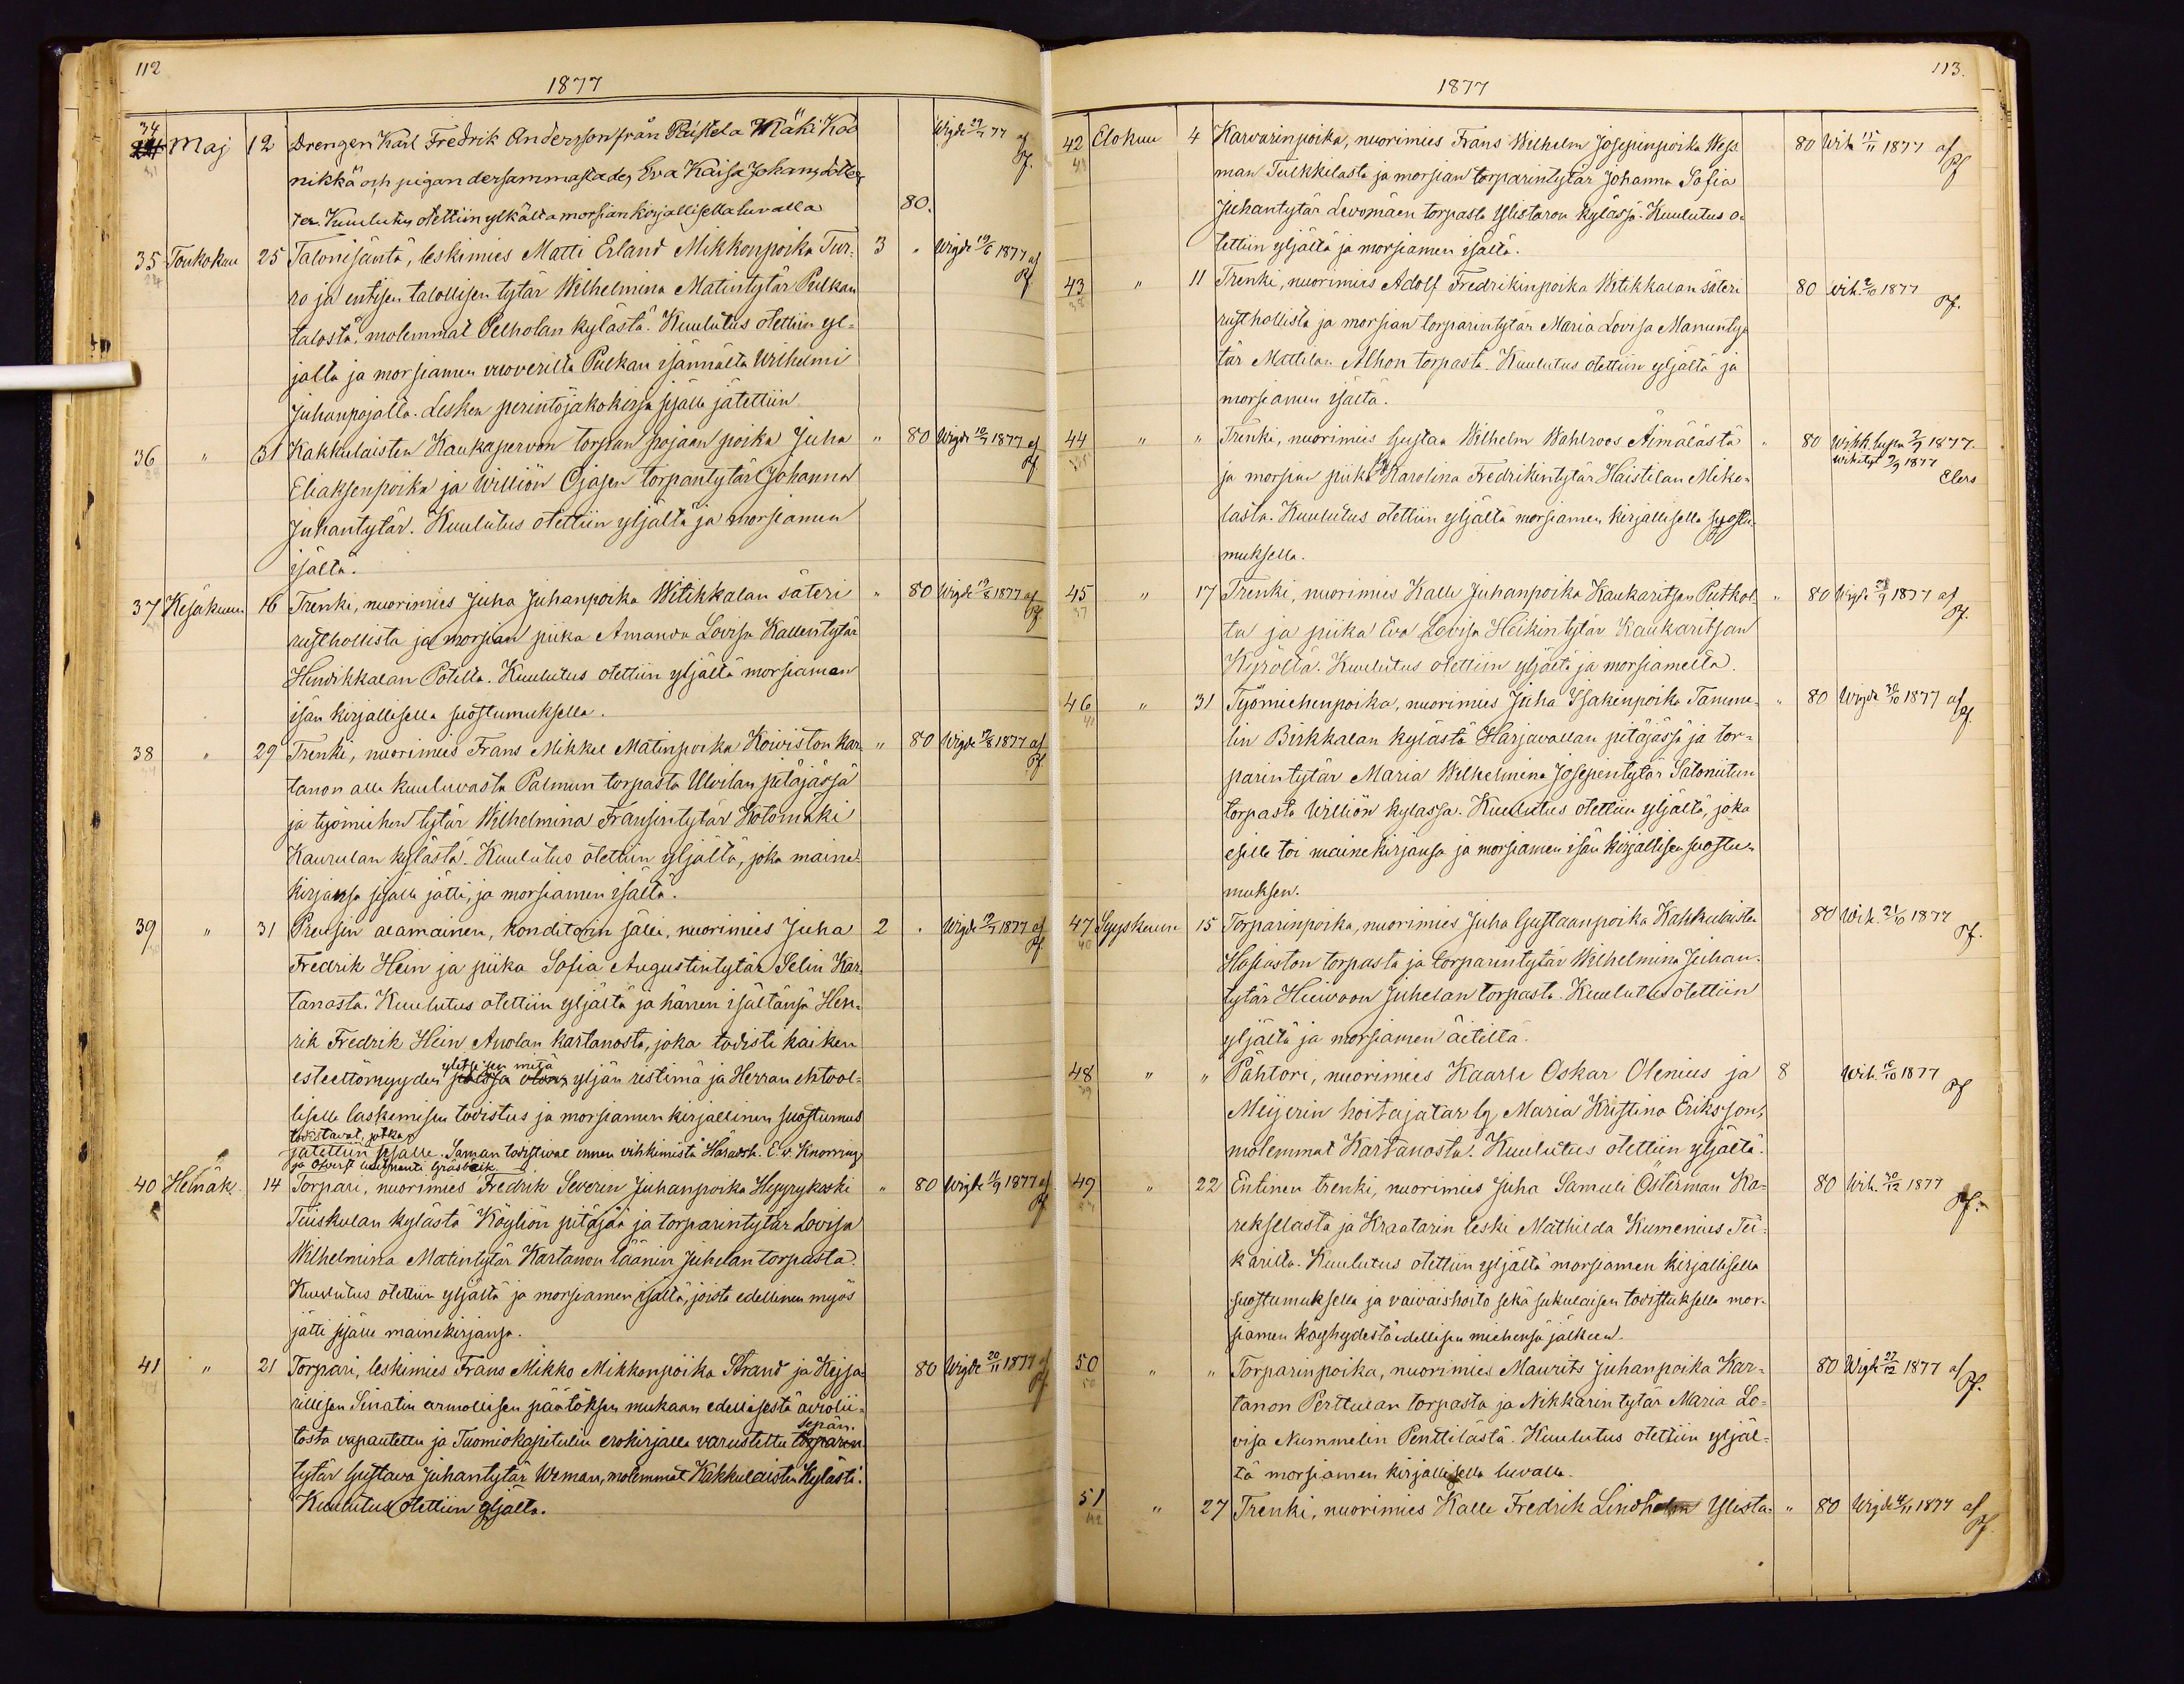 112
1877
34 Maj 12 Drengen Karl Fredrik Andersson från Ravstela Mäki Koo
nikkä och pigan dersammastades Eva Kaisa Johansdotter
Kuulutus otettiin ylkältä morsian kirjallisella luvalla 80.
35 Toukokuu 25 Talonisäntä, leskimies Matti Erland Mikkonpoika Tur- 3 " Wigde 19/6 1877 af
ro ja entisen talollisen tytär Wilhelmina Matintytär Pulkan
talosta, molemmat Pelholan kylästä. Kuulutus otettiin yl-
jältä ja morsiamen Pulkan isännältä Wilhelmi
Juhanpojalta. Lesken perintöjakokirja sisälle jätettiin
36 " 31 Kakkulaisten Kaukapervon torpan pojan poika Juha " 80 Wigde 10/7 1877 af
Eliaksenpoika ja Williön Ojasen torpantytär Johanna
Juhantytär. Kuulutus otettiin yljältä ja morsiamen
isältä.
37 Kesäkuun 16 Trenki, nuorimies Juha Juhanpoika Witikkalan säteri " 80 Wigde 19/8 1877 af
rusthollista ja morsian piika Amanda Lovisa Kallentytär
Hindikkalan Potilla. Kuulutus otettiin yljältä morsiaman
isän kirjallisella suostumuksella.
38 " 29 Trenki, nuorimies Frans Mikkel Matinpoika Koiviston kar- " 80 Wigde 19/8 1877 af
tanon alla kuuluvasta Palmun torpasta Ulvilan pitäjässä
ja työmiehen tytär Wilhelmina Fransintytär Kotomäki
Kaurulan kylästä. Kuulutus otettiin yljältä, joka maine-
kirjansa sisälle jätti, ja morsiamen isältä.
39 " 31 Preusin alamainen, konditorin sälli, nuorimies Juha 2 " Wigde 1877 af
Fredrik Hein ja piika Sofia Augustintytär Selin Kar-
tanosta. Kuulutus otettiin yljältä ja hänen isältänsä Hen-
rik Fredrik Hein Anolan kartanosta, joka todisti kaiken
esteettömyyden yljän ristimä ja Herran ehtool-
liselle laskemisen todistus ja morsiamen kirjallinen suostumus
todistavat, jotka
jätettiin sisälle. Saman todistivat ennen vihkimistä Häradsh. E. v. Knorring
ja Öfverst
40 Heinäk. 14 Torpari, nuorimies Fredrik Severin Juhanpoika Hepyrykoski " 80 Wigde 11/9 1877 af
Tuiskulan kylästä Köyliön pitäjää ja torparintytär Lovisa
Wilhelmina Matintytär Kartanon läänin Juhelan torpasta.
Kuulutus otettiin yljältä ja morsiamen isältä, joista edellinen myös
jätti sisälle mainekirjansa.
41 " 21 Torpari, leskimies Frans Mikko Mikkonpoika Strand ja Keisa- 80 Wigde 20/11 1877 af
rillisen Sinatin armollisen päätöksen mukaan edellisestä aviolii-
sepän
tosta vapautettu ja Tuomiokapitulin erokirjalla varustettu torparin
tytär Gustava Juhantytär Urman, molemmat Kakkulaisten Kylästä.
Kuulutus otettiin yljältä.
113.
1877
42 Elokuu 4 Karvarinpoika, nuorimies Frans Wilhelm Josepinpoika Wess 80 Wih 15/11 1877 af
man Tulkkilasta ja morsian torparintytär Johanna Sofia
Juhantytär Levomäen torpasta Ylistaron kylässä. Kuulutus o-
tettiin yljältä ja morsiamen isältä.
43 " 11 Trenki, nuorimies Adolf Fredrikinpoika Witikkalan säteri 80 Wih. 1877
rusthollista ja morsian torparintytär Maria Lovisa Manuntyt
tär Mattilan Alhon torpasta. Kuulutus otettiin yljältä ja
morsiamen isältä.
44 " " Trenki, nuorimies Gustaa Wilhelm Wahlroos Äimälästä " 80 Wihk lupa 1877.
wihityt 9/9 1877
ja morsian piika Karolina Fredrikintytär Haistilan Mikko-
lasta. Kuulutus otettiin yljältä morsiamen kirjallisella suostu-
muksella.
45 " 17 Trenki, nuorimies Kalle Juhanpoika Kaukaritsan Puthol- " 80 Wigde 28/9 1877 af
ta ja piika Eva Lovisa Heikintytär Kaukaritsan
Kyrölta. Kuulutus otettiin yljältä ja morsiamelta.
46 " 31 Työmiehenpoika, nuorimies Juha Isakinpoika Tamme- " 80 Wigde 30/10 1877 af
lin Birkkalan kylästä Harjavallan pitäjässä ja tor-
parintytär Maria Wilhelmina Josepintytär Sätoniitun
torpasta Williön kylässä. Kuulutus otettiin yljältä, joka
esille toi mainekirjansa ja morsiamen isän kirjallisen suostu-
muksen.
47 Syyskuun 15 Torparinpoika, nuorimies Juha Gustaanpoika Kakkulaisten 80 Wih. 21/10 1877
Hapiaston torpasta ja torparintytär Wilhelmina Juhan-
tytär Huivoon Juhelan torpasta. Kuulutus otettiin
yljältä ja morsiamen äitiltä.
48 " " Pähtori, nuorimies Kaarle Oskar Olenius ja 8 Wih. 16/10 1877
Meijerin hoitajatar Maria Kristina Eriksson,
molemmat Kartanosta. Kuulutus otettiin yljältä.
49 " 22 Entinen trenki, nuorimies Juha Samuli Österman Ka- 80 Wih. 30/12 1877
rekselasta ja Kraatarin leski Mathilda Kumenius Tei-
karilta. Kuulutus otettiin yljältä morsiamen kirjallisella
suostumuksella ja vaivaishoito sekä sukulaisen todistuksella mor-
siamen köyhydestä edellisen miehensä jälkeen.
50 " " Torparinpoika, nuorimies Maurits Juhanpoika Kar- 80 Wigde 27/12 1877 af
tanon Perttulan torpasta ja Nikkarin tytär Maria Lo-
visa Nummelin Penttilästä. Kuulutus otettiin yljäl-
tä morsiamen kirjallisella luvalla.
51 " 27 Trenki, nuorimies Kalle Fredrik Lindholm Ylista- " 80 Wigde 1877 af